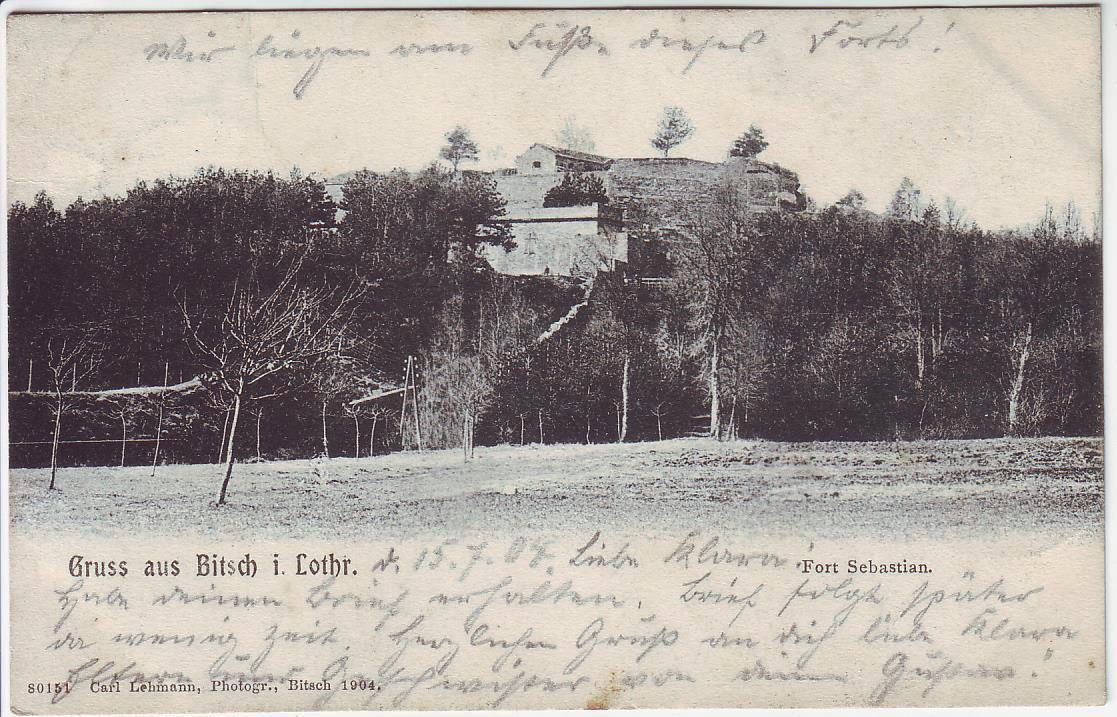 Wir liegen am Fuße dieses Forts!
Gruss aus Bitsch i. Lothr. d. 15.7.04. Liebe Klara! Fort Sebastian.
Habe deinen Brief erhalten. Brief folgt später
da wenig Zeit. Herzlichen Gruß an dich liebe Klara
Eltern und Geschwister von deinem Gustav!
80151 Carl Lehmann, Photogr., Bitsch 1904.